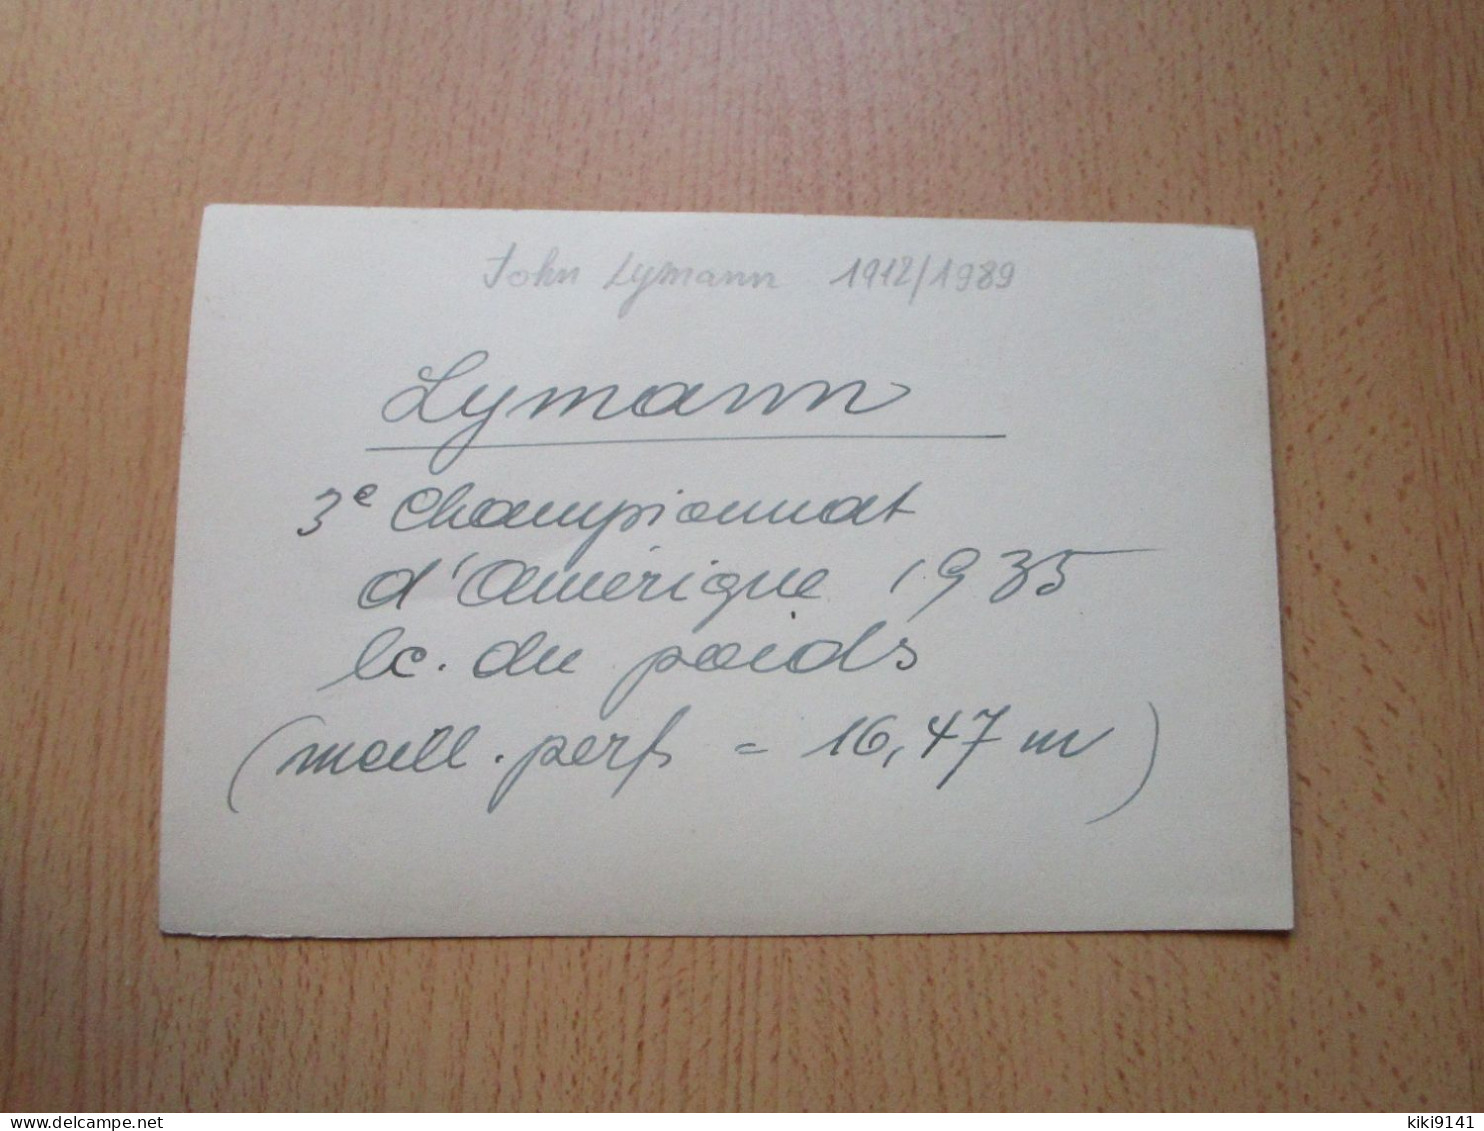 John Lymann 1912/1989
Lymann
3e Championnat
d'Amérique 1935
lc. du poids
(meill. perf. = 16,47 m)
www.delcampe.net
kiki9141